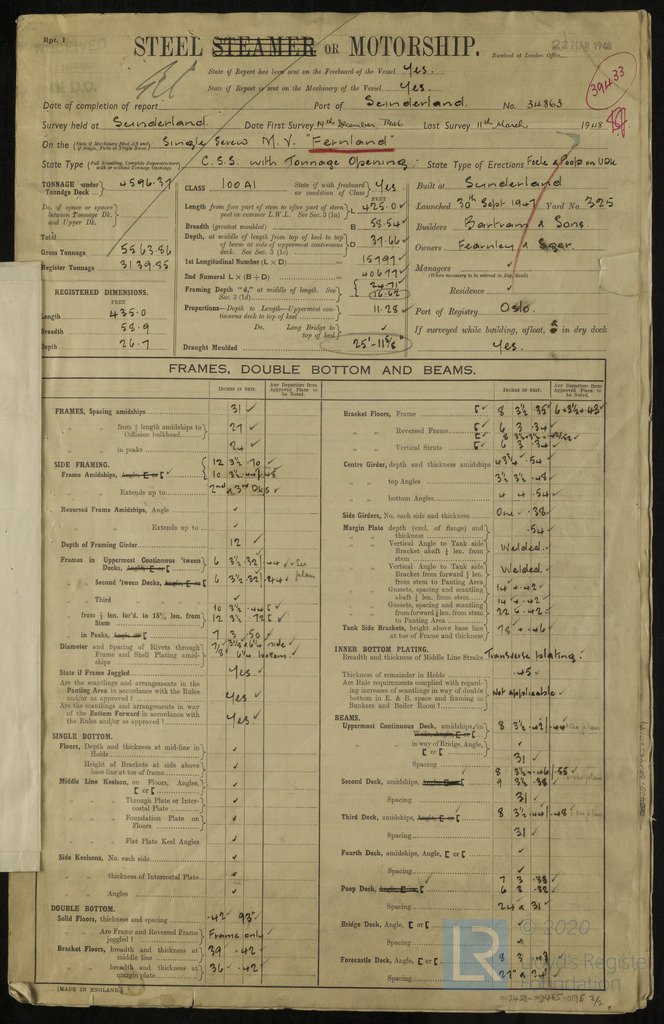 Rpt. 1
STEEL STEAMER OR MOTORSHIP.
22 MAR 1948
Received at London Office
State if Report has been sent on the Freeboard of the Vessel Yes.
State if Report is sent on the Machinery of the Vessel Yes.
39433
Date of completion of report Port of Sunderland. No. 34863
Survey held at Sunderland. Date First Survey 19th December, Last Survey 11th March 1948
On the Single Screw M.V. "Fernland"
State Type C.S.S. with Tonnage Opening. State Type of Erections Focle & Poop on UDk
TONNAGE under Tonnage Deck 4596.37
Do. of space or spaces between Tonnage Dk. and Upper Dk.
Total
Gross Tonnage 5563.86
Register Tonnage 3139.85
REGISTERED DIMENSIONS.
FEET
Length 435.0
Breadth 58.9
Depth 26.7
CLASS 100A1 State if with freeboard as condition of Class Yes
FEET
Length from fore part of stem to after part of stern post on summer L.W.L. See Sec. 3 (1a) L 425.0
Breadth (greatest moulded) B 58.54
Depth, at middle of length from top of keel to top of beam at side of uppermost continuous deck. See Sec. 3 (1c) D 37.66
1st Longitudinal Number (L × D) 15797
2nd Numeral L × (B + D) 40677
Framing Depth "d," at middle of length. See Sec. 3 (1d) 24.71
16.62
Proportions—Depth to Length—Uppermost continuous deck to top of keel 11.28
Do. Long Bridge to top of keel
Draught Moulded 25'-11 5/8"
Built at Sunderland
Launched 30th Sept 1947 Yard No. 325
Builders Bartram & Sons.
Owners Fearnley & Eger.
Managers
(Where necessary to be entered in Reg. Book)
Residence
Port of Registry Oslo.
If surveyed while building, afloat, or in dry dock
Yes.
FRAMES, DOUBLE BOTTOM AND BEAMS.
INCHES IN SHIP. Any Departure from Approved Plans to be Noted.
FRAMES, Spacing amidships 31
" from 3/5 length amidships to Collision bulkhead 27
" in peaks 24
SIDE FRAMING.
Frame Amidships, Angle, E or [ 12 3½ .70
10 3½ .44 .48
Extends up to 2nd & 3rd Dks
Reversed Frame Amidships, Angle
" " Extends up to
Depth of Framing Girder 12
Frames in Uppermost Continuous 'tween Decks, Angle, E or [ 6 3½ .32 .44 See plan
" Second 'tween Decks, Angle, E or [ 6 3½ .32 .44
" Third " "
" from ⅕ len. for'd. to 15% len. from Stem 10 3½ .44
12 3½ .72
" in Peaks, Angle or [ 7 3 .50
Diameter and Spacing of Rivets through Frame and Shell Plating amidships
State if Frame Joggled Yes.
Are the scantlings and arrangements in the Panting Area in accordance with the Rules and/or as approved? Yes
Are the scantlings and arrangements in way of the Bottom Forward in accordance with the Rules and/or as approved? Yes.
SINGLE BOTTOM.
Floors, Depth and thickness at mid-line in Holds
Height of Brackets at side above base line at toe of frame
Middle Line Keelson, on Floors, Angles, [ or [
" " Through Plate or Intercostal Plate
" " Foundation Plate on Floors
" " Flat Plate Keel Angles
Side Keelsons, No. each side
" " thickness of Intercostal Plate
" " Angles
DOUBLE BOTTOM.
Solid Floors, thickness and spacing .42 93"
" " Are Frame and Reversed Frame joggled? Frame only
Bracket Floors, breadth and thickness at middle line 39 .42
" " breadth and thickness at margin plate 36 .42
[MADE IN ENGLAND.]
INCHES IN SHIP. Any Departure from Approved Plans to be Noted.
Bracket Floors, Frame 8 3½ .35 6 × 3½ × .43
" " Reversed Frame
" " Vertical Struts 6 3 .34
Centre Girder, depth and thickness amidships 43¾ .54
" " top Angles 3½ 3½ .48
" " bottom Angles 4 4 .54
Side Girders, No. each side and thickness One .38
Margin Plate depth (excl. of flange) and thickness .54
" " Vertical Angle to Tank side Bracket abaft ¼ len. from stem Welded
" " Vertical Angle to Tank side Bracket from forward ¼ len. from stem to Panting Area Welded.
" " Gussets, spacing and scantling abaft ¼ len. from stem
" " Gussets, spacing and scantling from forward ¼ len. from stem to Panting Area
Tank Side Brackets, height above base line at toe of Frame and thickness 78 .46
INNER BOTTOM PLATING.
Breadth and thickness of Middle Line Strake Transverse plating.
Thickness of remainder in Holds .45
Are Rule requirements complied with regarding increases of scantlings in way of double bottom in E. & B. space and framing in Bunkers and Boiler Room? Not applicable
BEAMS.
Uppermost Continuous Deck, amidships, in Wells, Angle, E or [ 8 3½ .42 .44 See plan
" " in way of Bridge, Angle, [ or [
Spacing 31
Second Deck, amidships, Angle, E or [ 8 3½ .46 .55
9 3½ .38
Spacing 31
Third Deck, amidships, Angle, E or [ 8 3½ .44 .48
Spacing 31
Fourth Deck, amidships, Angle, [ or [
Spacing
Poop Deck, Angle, E or [ 7 3 .38
6 3 .32
Spacing 24 & 31
Bridge Deck, Angle, [ or [
Spacing
Forecastle Deck, Angle, [ or [ 8 3 .43
Spacing 27" & 24
LR
© 2020
Lloyd's Register
Foundation